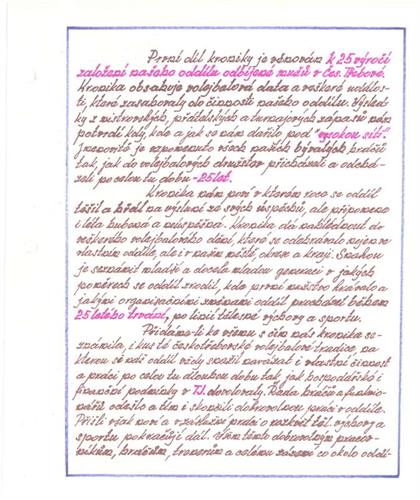 První díl kroniky je věnován k 25 výročí
založení našeho oddílu odbíjené mužů v Čes. Třebové.
Kronika obsahuje volejbalová data a veškeré událos-
ti, které zasahovaly do činnosti našeho oddílu. Výsled-
ky z mistrovských, přátelských a turnajových zápasů nám
potvrdí kdy, kde a jak se nám dařilo pod "vysokou sítí".
Jmenovitě je vzpomenuto všech našich bývalých hráčů
tak, jak do volejbalových družstev přicházeli a odchá-
zeli po celou tu dobu - 25 let.
Kronika nám poví v kterém roce se oddíl
těšil a hřál na výsluní ze svých úspěchů, ale připomene
i léta hubená a neúspěšná. Kronika dá nahlédnout do
veškerého volejbalového dění, které se odehrávalo nejen ve
vlastním oddíle, ale i v našem městě, okrese a kraji. Snahou
je seznámit mladší a docela mladou generaci v jakých
poměrech se oddíl zrodil, kdo první mužstvo hrávalo a
jakými organizačními změnami oddíl procházel během
25 letého trvání, po linii tělesné výchovy a sportu.
Přidáme-li ke všemu s čím nás kronika se-
známila, i kus té českotřebovské volejbalové tradice, na
kterou se náš oddíl vždy snažil navázat i vlastní činnost
a práci po celou tu dlouhou dobu tak, jak hospodářské i
finanční podmínky v TJ. dovolovaly. Řada hráčů a funkcio-
nářů odešlo a tím i skončili dobrovolnou práci v oddíle.
Přišli však noví a v záslužné práci o rozkvět těl. výchovy a
sportu pokračují dál. Všem těmto dobrovolným pracov-
níkům, hráčům, trenérům a celému zázemí co okolo oddí-